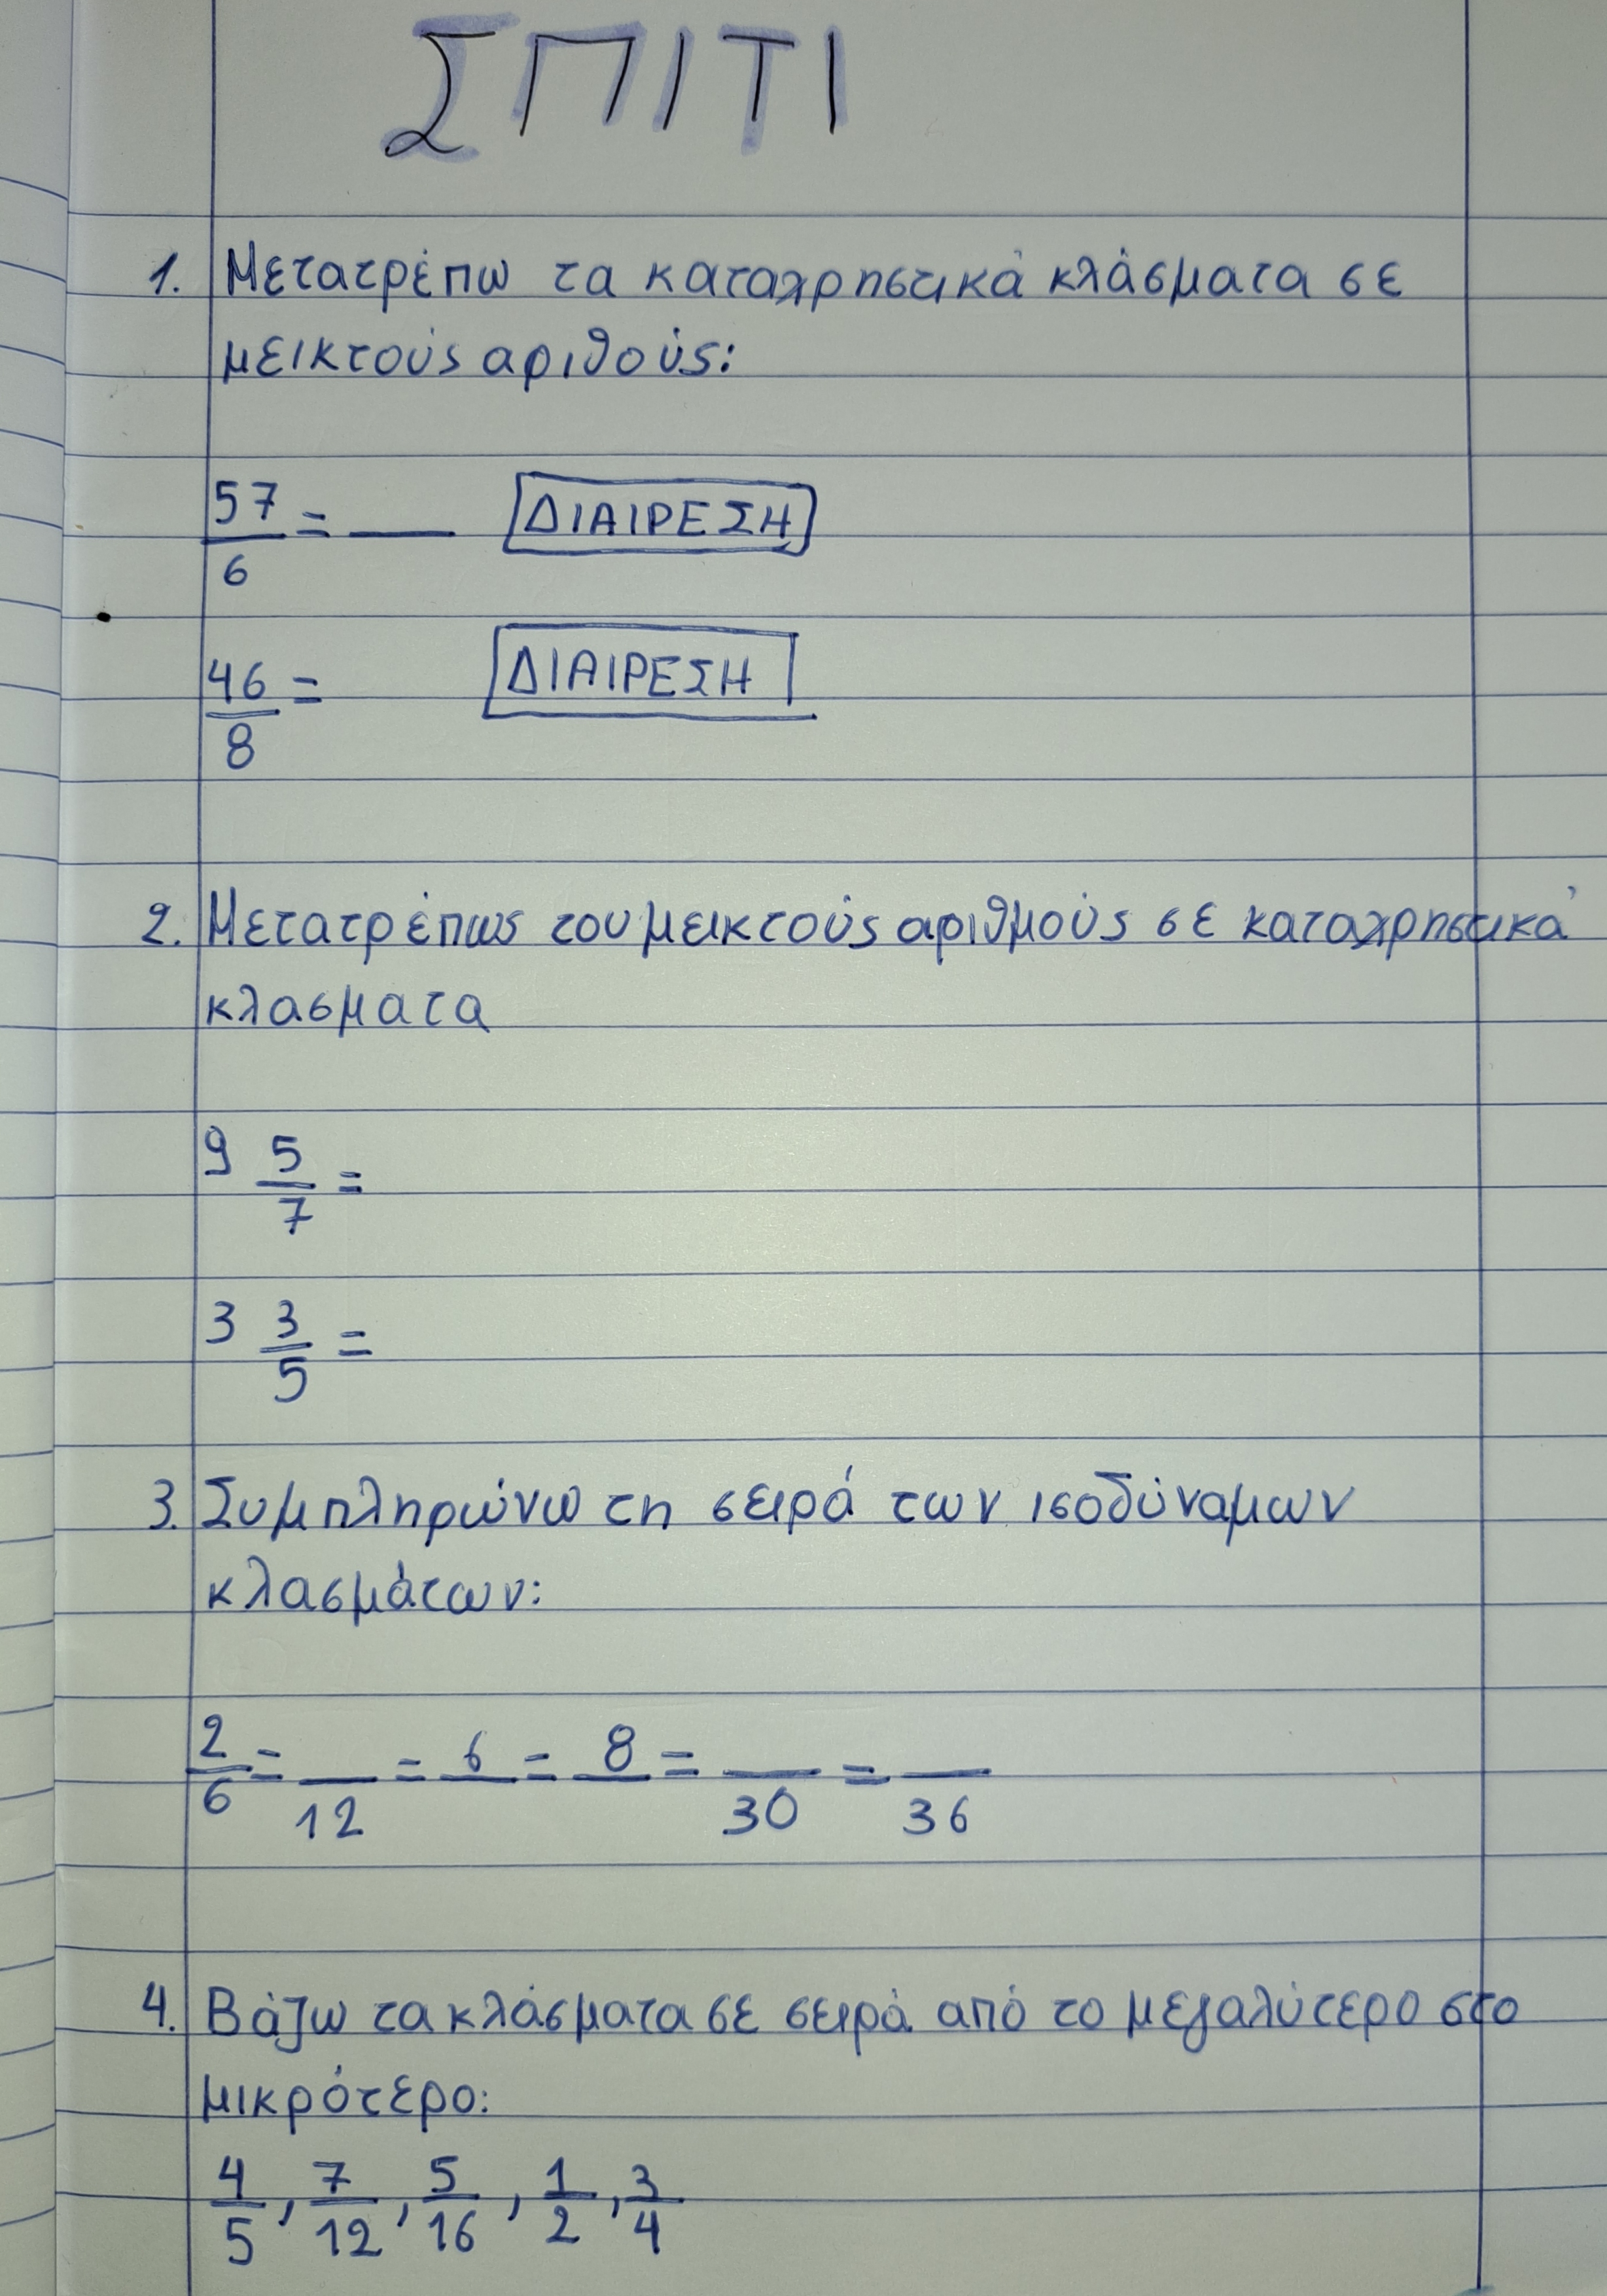 ΣΠΙΤΙ
1. Μετατρέπω τα καταχρηστικά κλάσματα σε
μεικτούς αριθούς:
57/6 = __ ΔΙΑΙΡΕΣΗ
46/8 = ΔΙΑΙΡΕΣΗ
2. Μετατρέπως του μεικτούς αριθμούς σε καταχρηστικά
κλασματα
9 5/7 =
3 3/5 =
3. Συμπληρώνω τη σειρά των ισοδύναμων
κλασμάτων:
2/6 = __/12 = 6/__ = 8/__ = __/30 = __/36
4. Βάζω τα κλάσματα σε σειρά από το μεγαλύτερο στο
μικρότερο:
4/5, 7/12, 5/16, 1/2, 3/4